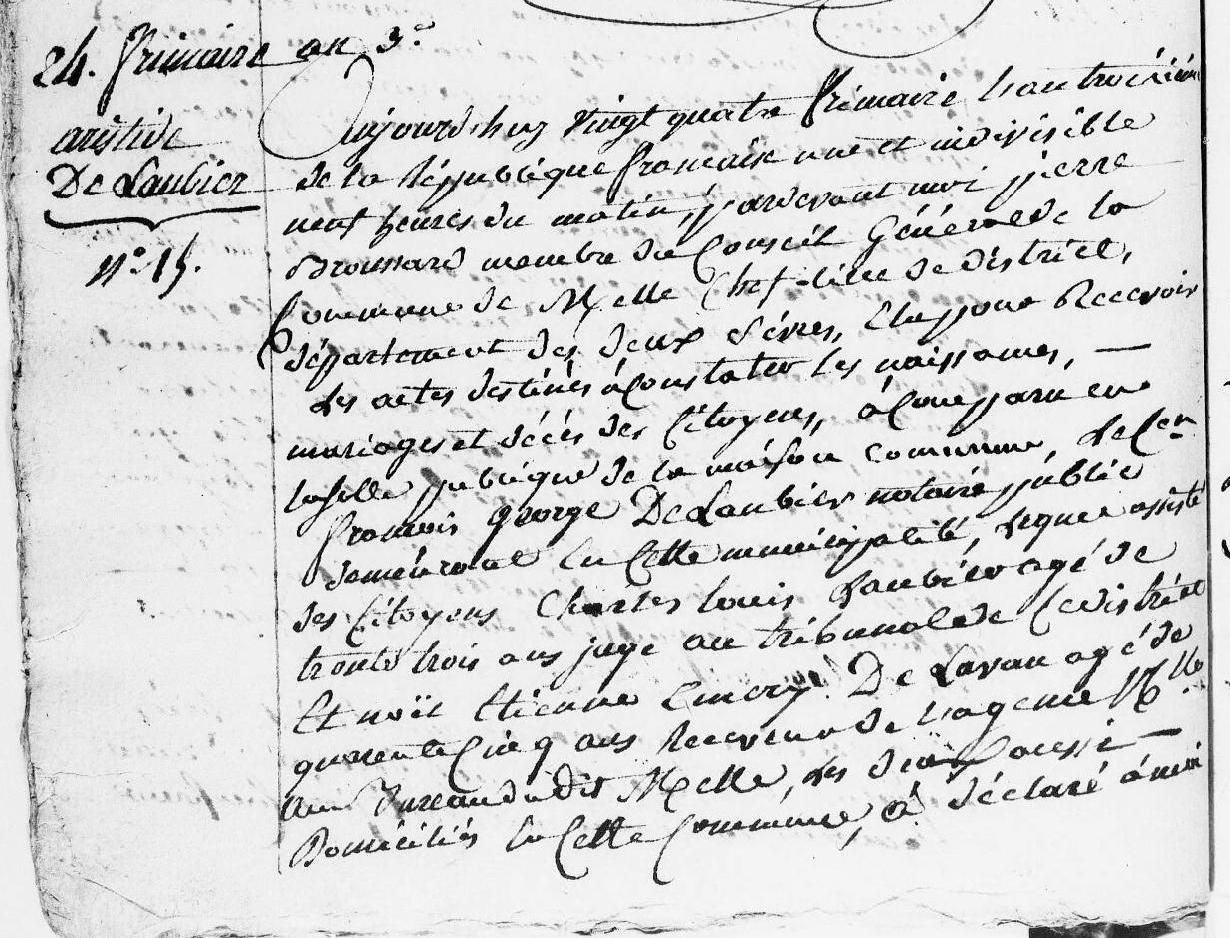 24. frimaire an 3.e
aristide
De Laubier
n.o 15.
Aujourd'huy vingt quatre frimaire l'an troisiéme
de la République francaise une et indivisible
neuf heures du matin, pardevant moi pierre
Broussard membre du Conseil Général de la
Commune de Melle Chef-lieu de District,
département des deux Sévres, Elu pour Recevoir
Les actes destinés à Constater les naissances, —
mariages et décés des Citoyens, à Comparu en
la salle publique de la maison commune, Le C.en
francois george De Laubier notaire public
demeurant En Cette municipalité, Lequel assisté
des Citoyens Charles louis Laubier agé de
trente trois ans juge au tribunal de Ce district
Et noël Etienne Emery De Lavau agé de
quarente Cinq ans Receveur de l'agence N.lle
au Bureau dudit Melle, les deux aussi —
Domiciliés En Cette Commune, à déclaré à moi